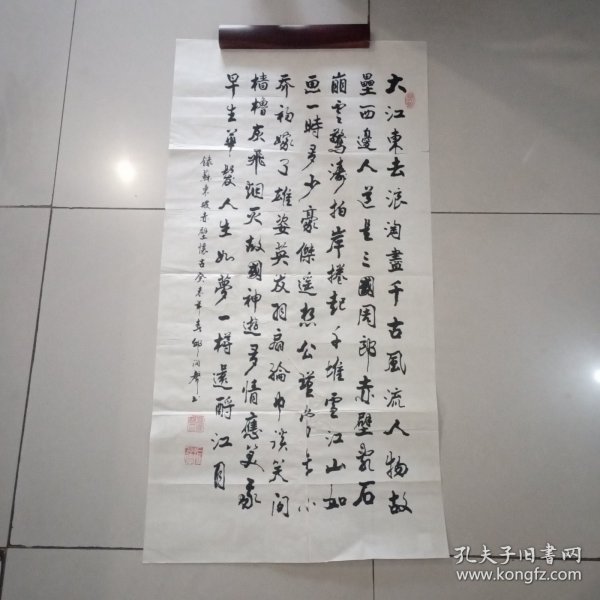 大江東去浪淘盡千古風流人物故
壘西邊人道是三國周郎赤壁亂石
崩雲驚濤拍岸捲起千堆雪江山如
画一時多少豪傑遥想公瑾當年小
乔初嫁了雄姿英发羽扇綸巾談笑间
檣櫓灰飛烟灭故國神遊多情應笑我
早生華髮人生如夢一樽還酹江月
錄蘇東坡赤壁懷古癸未年春
孔夫子旧書网
www.kongfz.com